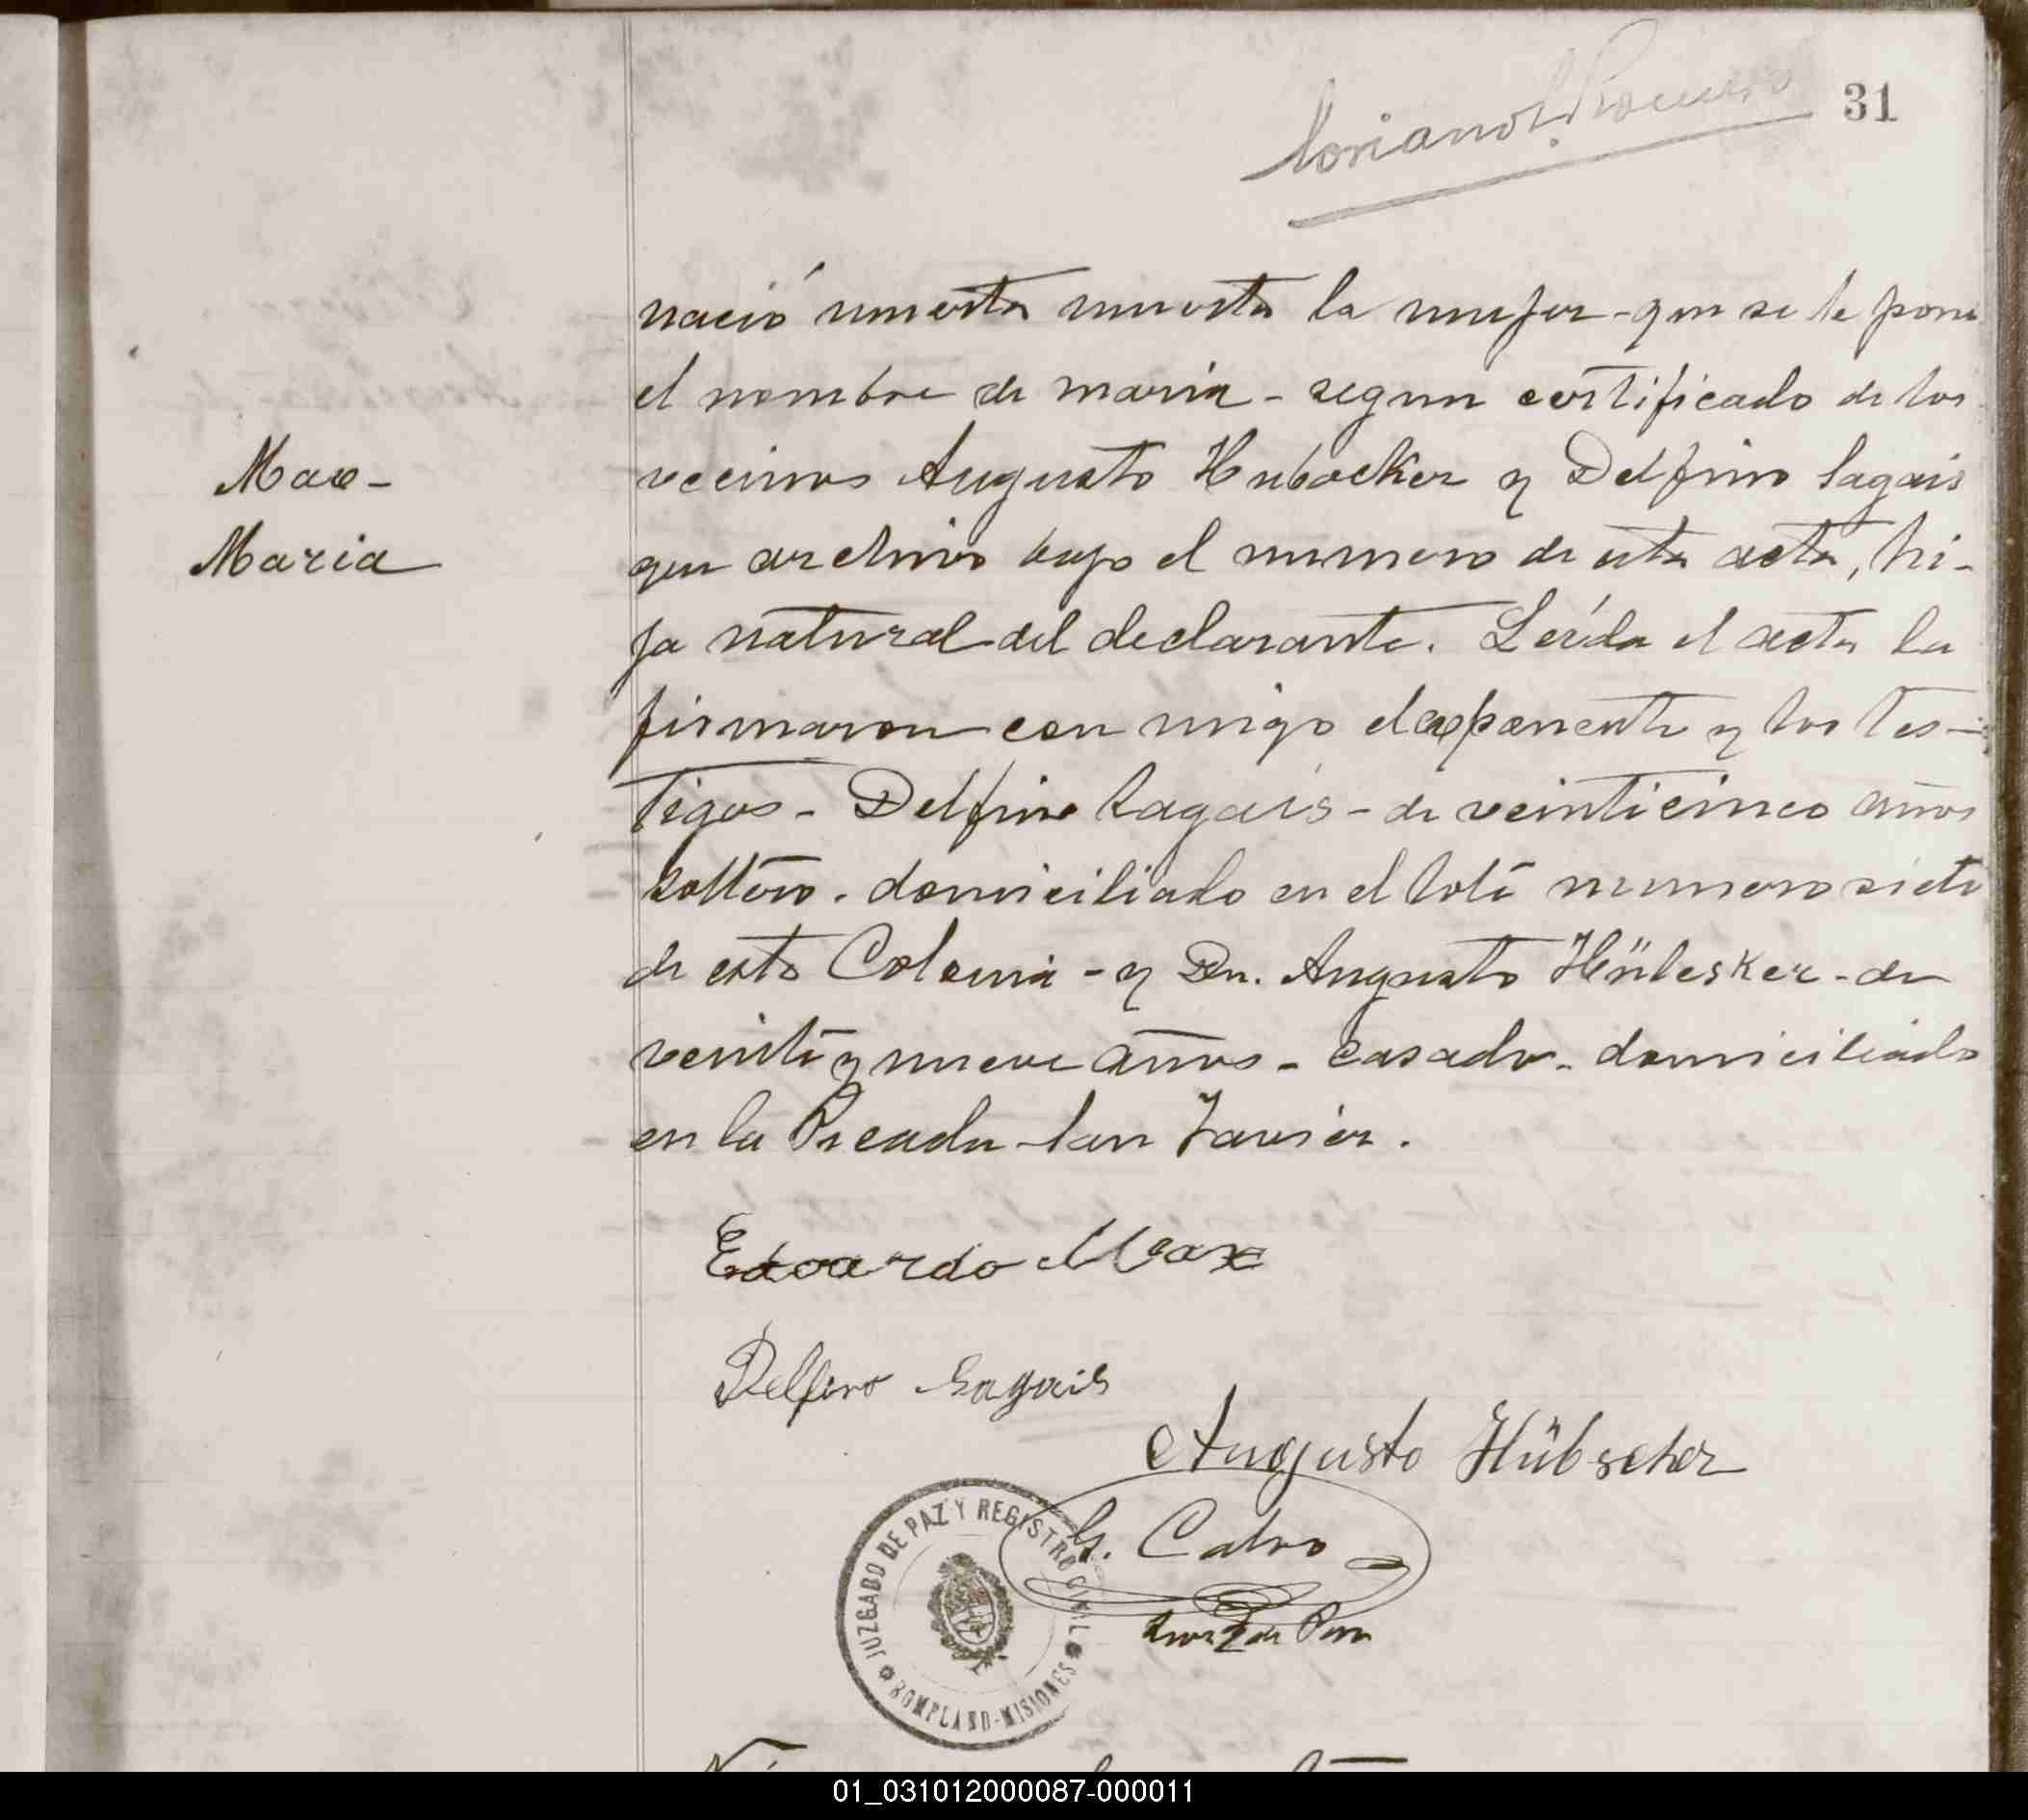 31
Max-
Maria
nació muerta muerta la mujer - que se le pone
el nombre de maria - segun certificado de los
vecinos Augusto Hubocker y Delfino Sagais
que archivo bajo el numero de esta acta, hi-
ja natural del declarante. Leída el acta la
firmaron con migo el exponente y los tes-
tigos - Delfino Sagais - de veinticinco años
soltero. domiciliado en el lote numero siete
de esta Colonia - y Dn. Augusto Hübesker - de
veinte y nueve años - casado - domiciliado
en la Picada San Javier.
Edoardo Max
Delfino Sagais
Augusto Hübscher
G. Calvo
Juez de Paz
JUZGADO DE PAZ Y REGISTRO CIVIL
BOMPLAND-MISIONES
01_031012000087-000011